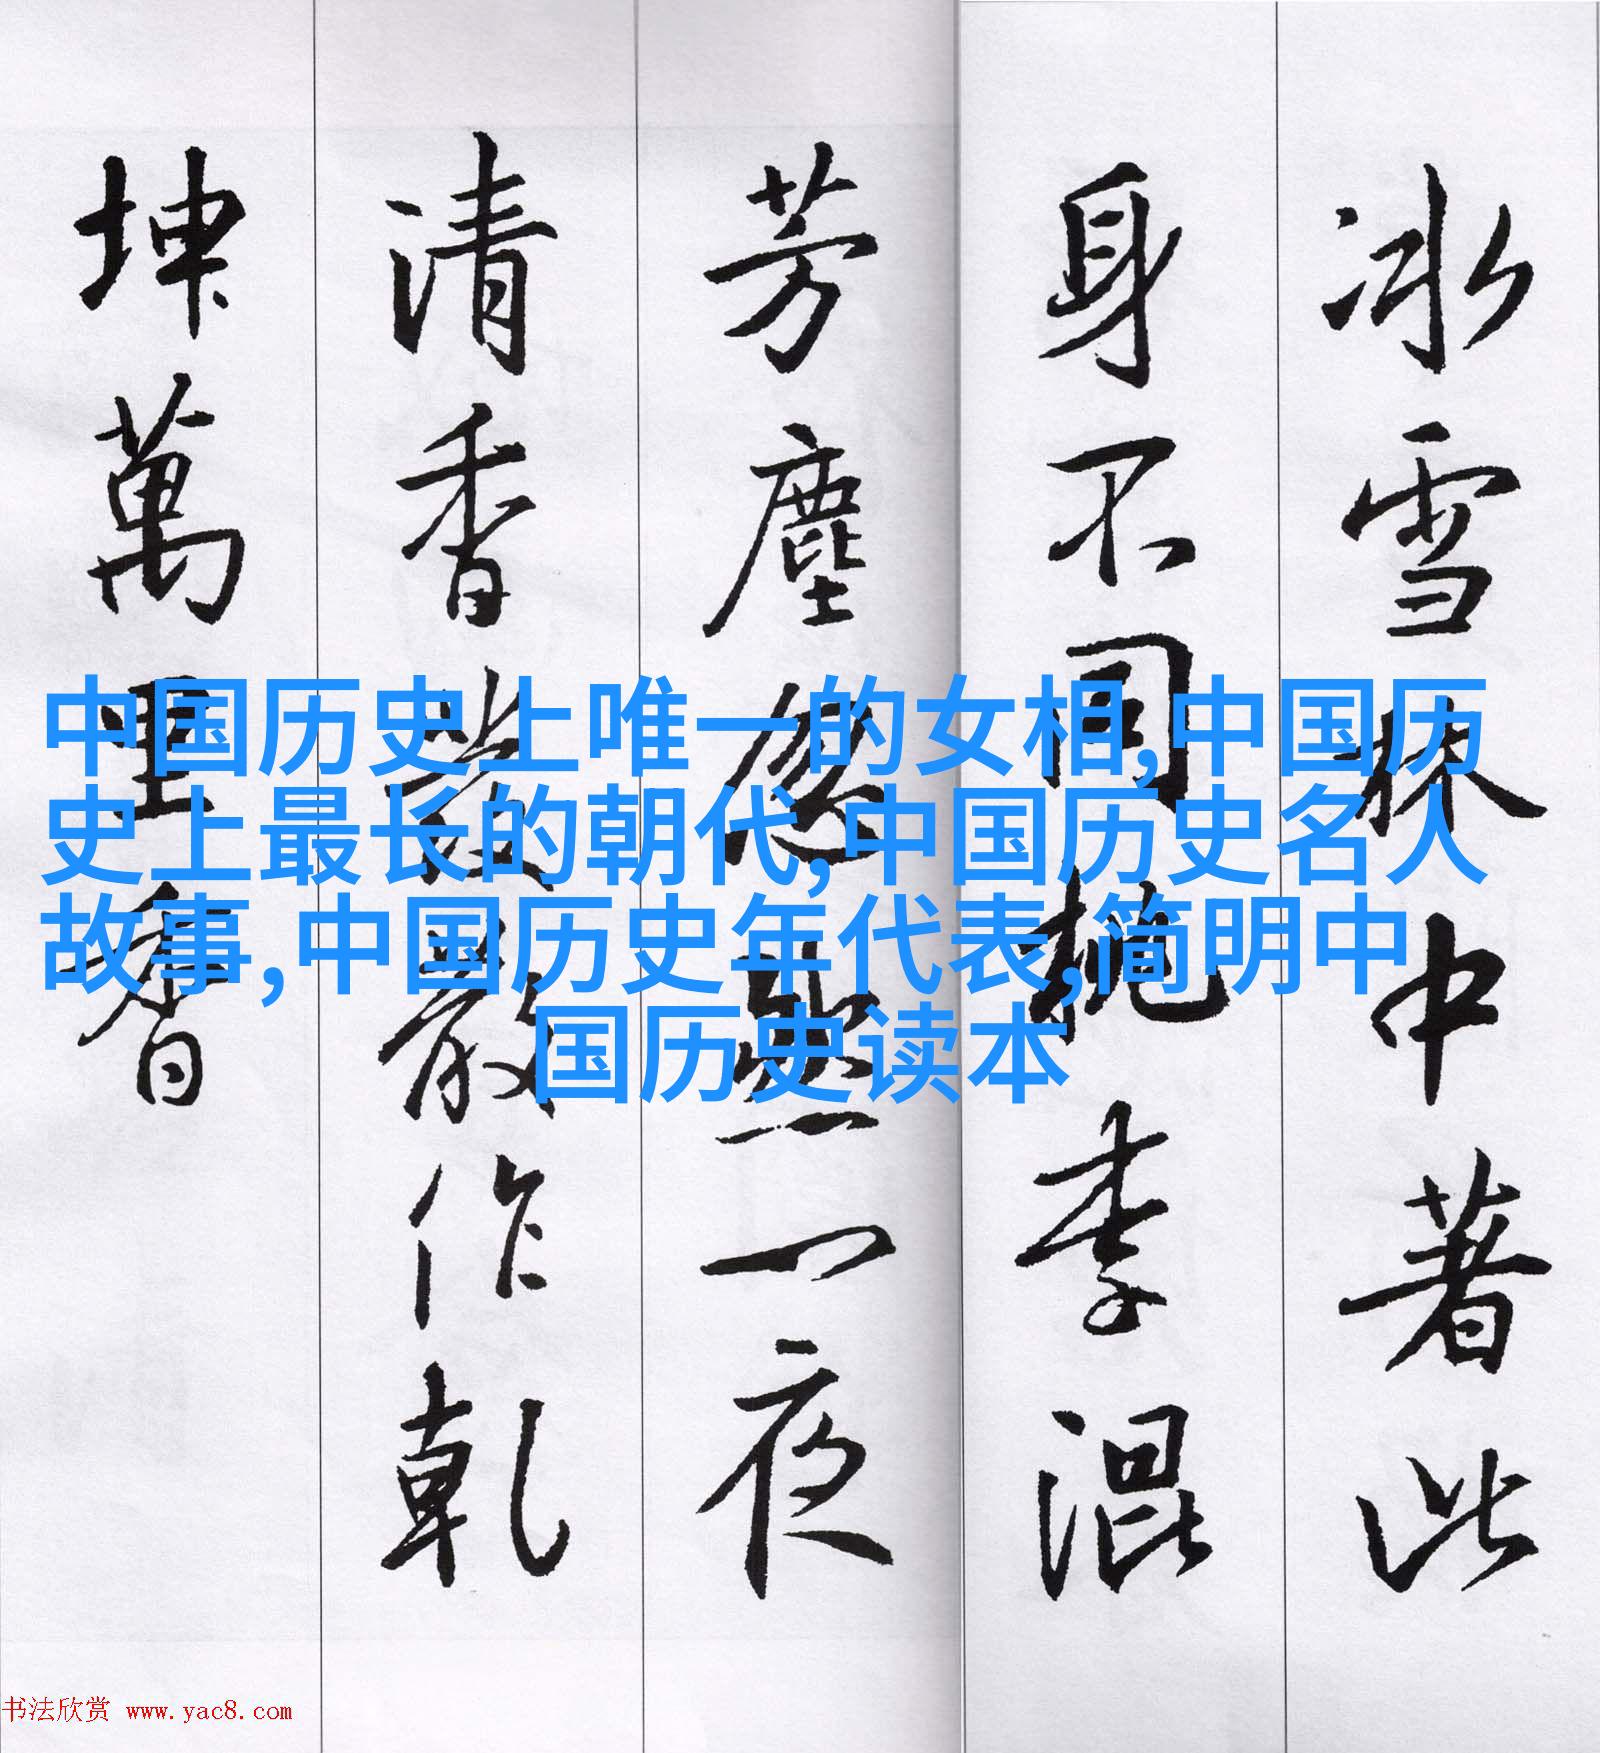 冰雪林中著此
身不同桃李混
芳塵忽然一夜
清香發散作乾
坤萬里春
中国历史上唯一的女相,中国历
史上最长的朝代,中国历史名人
故事,中国历史年代表,简明中
国历史读本
书法欣赏 www.yac8.com